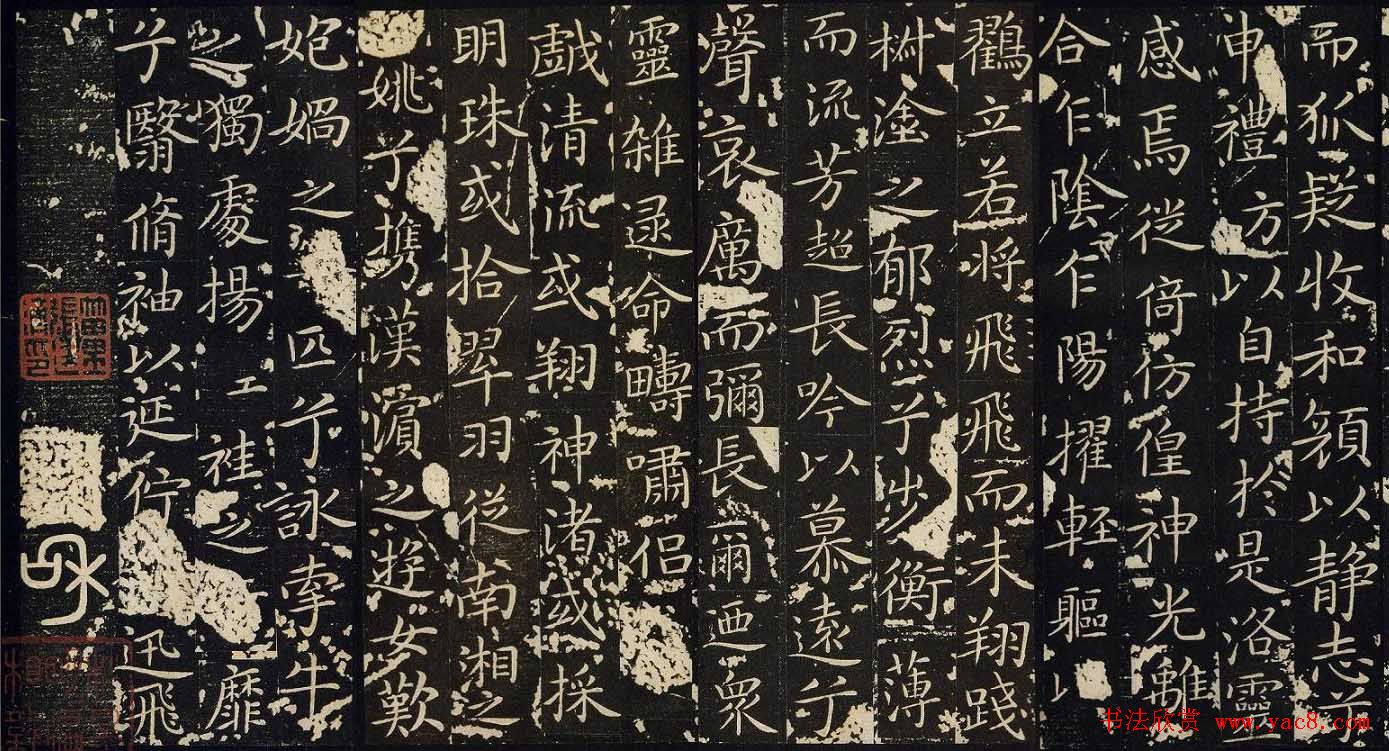 而狐疑收和顔以静志兮
申禮方以自持於是洛靈
感焉徙倚彷徨神光離
合乍陰乍陽擢輕軀以
鶴立若将飛飛而未翔踐
椒塗之郁烈兮步衡薄
而流芳超長吟以慕遠兮
聲哀厲而彌長爾迺衆
靈雜遝命疇嘯侣
戯清流或翔神渚或採
明珠或拾翠羽従南湘之
姚兮携漢濵之遊女歎
妑媧之匹兮詠牽牛
之獨處揚工袿之靡
兮翳脩袖以延佇迅飛
书法欣赏 www.yac8.com